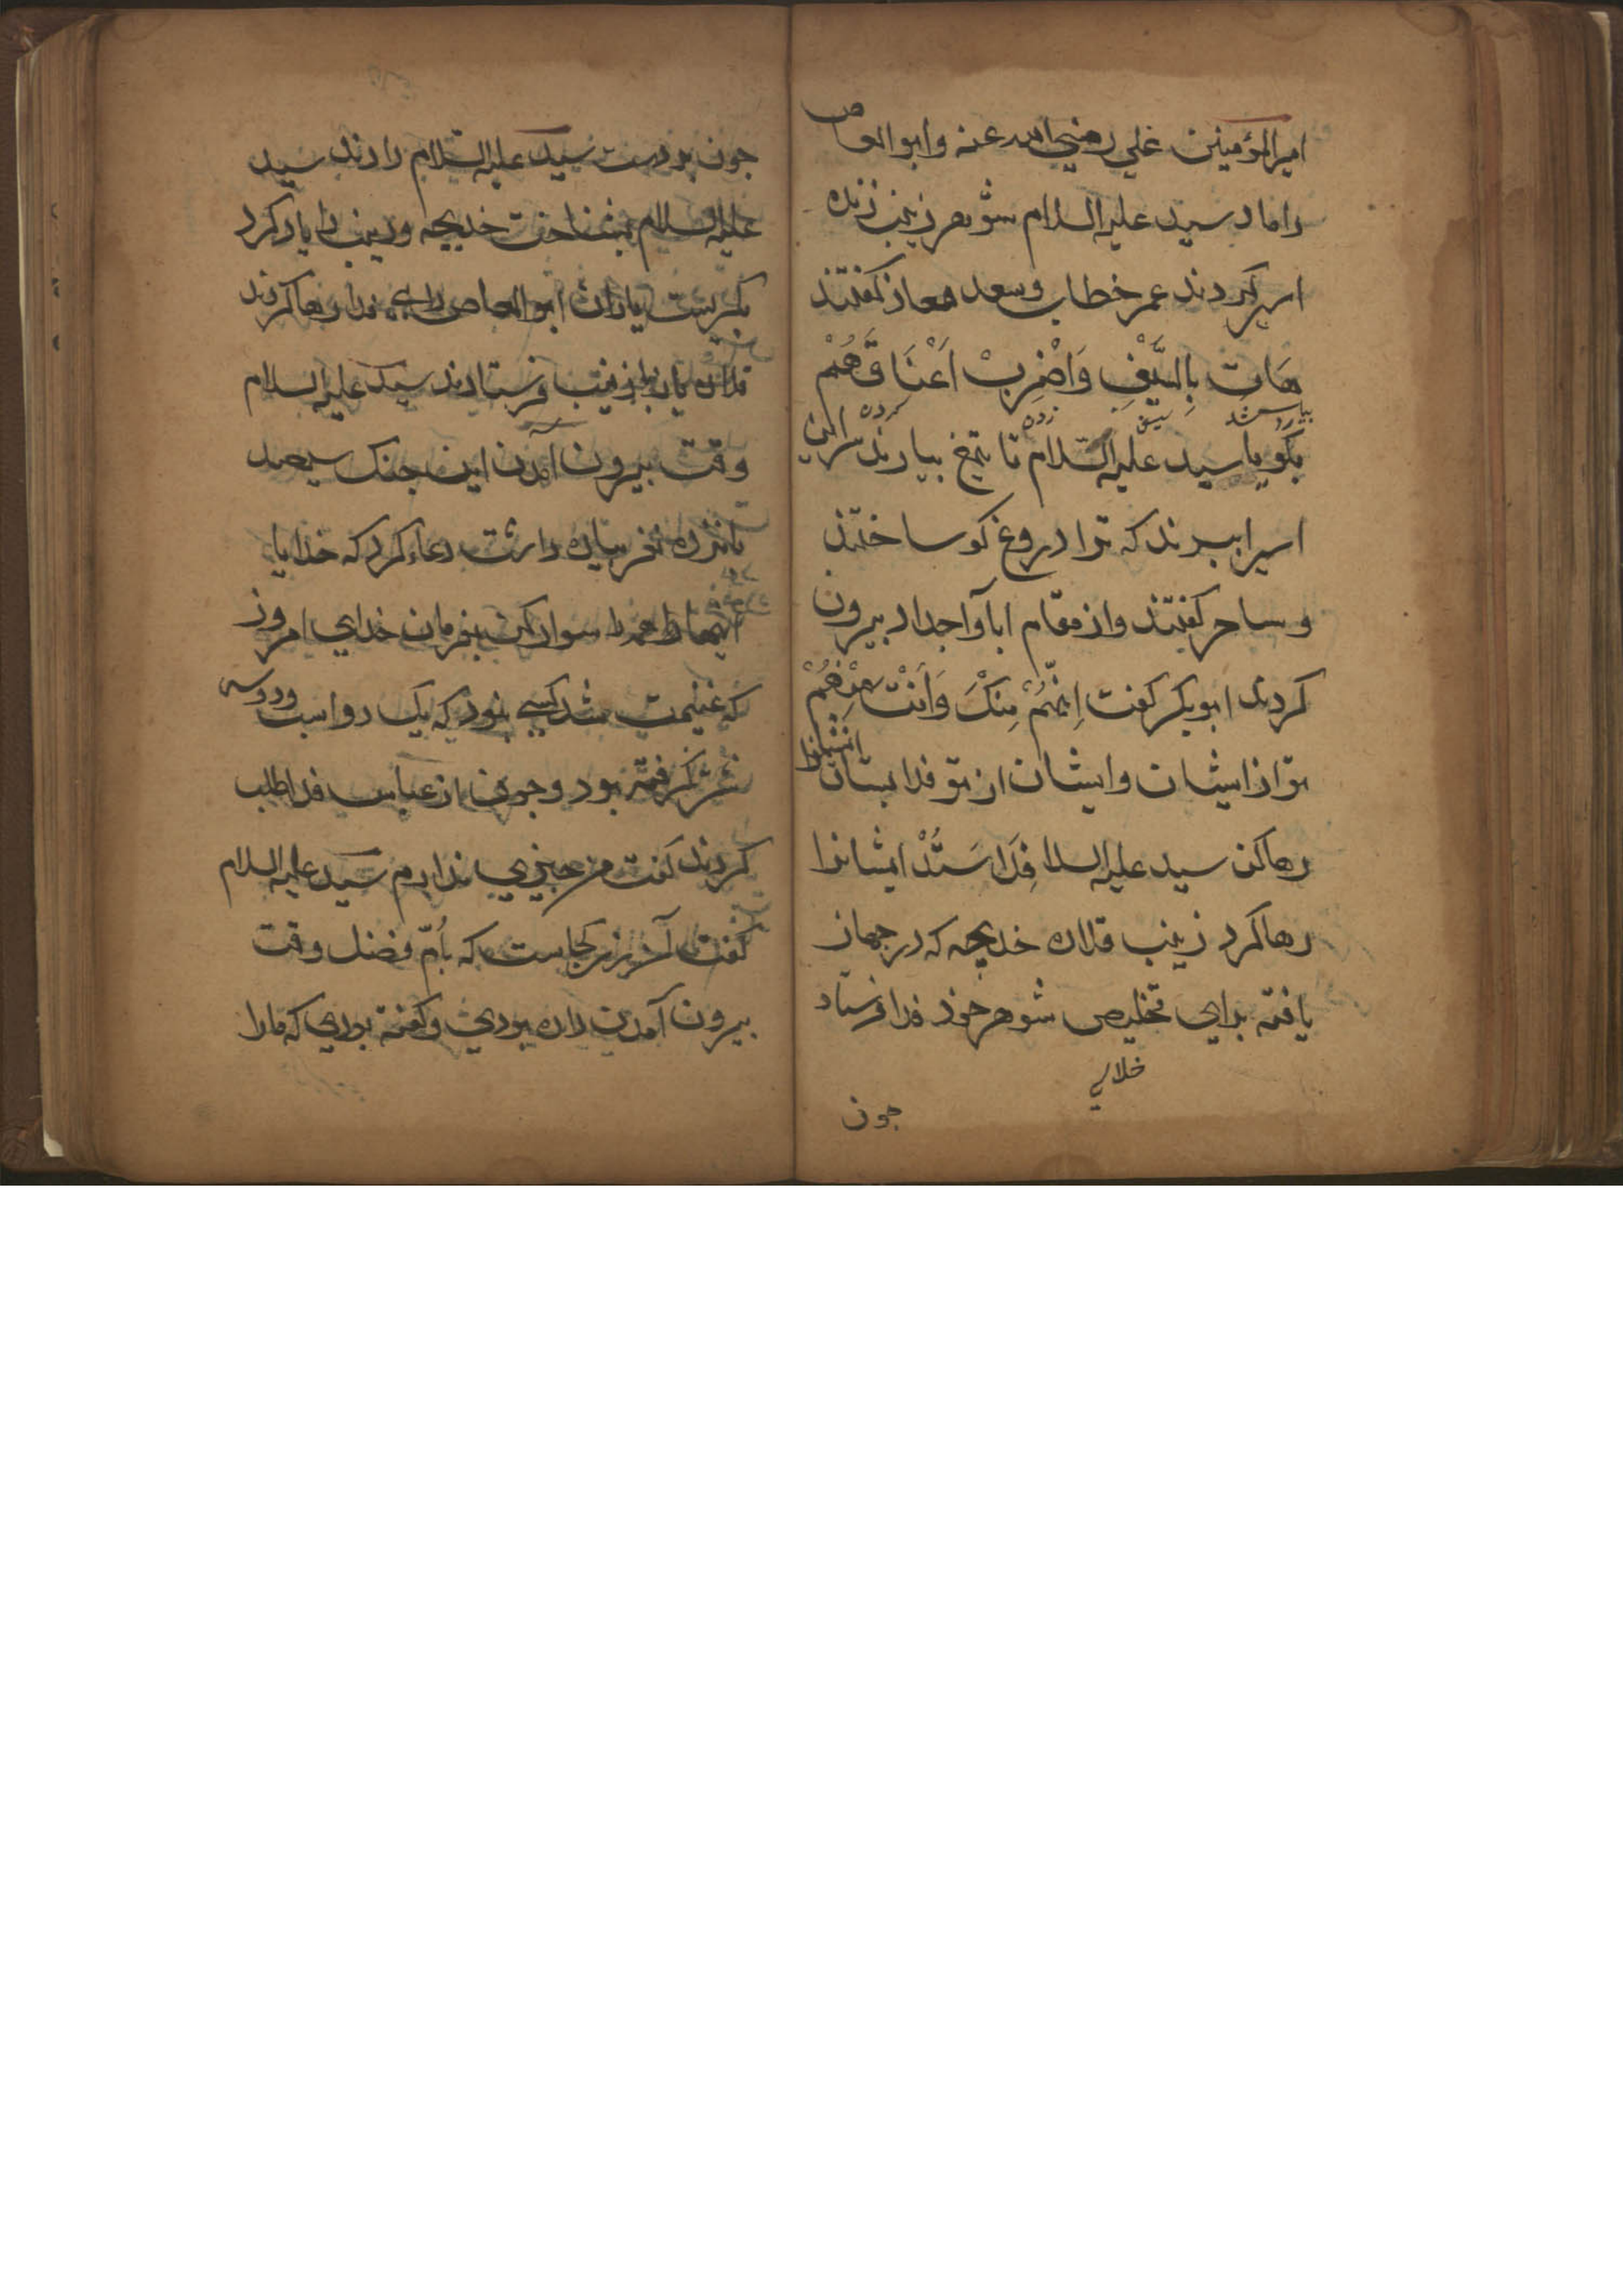 امیر المؤمنین علي رضي الله عنه وابو العاص
داماد سید علیه السلام شوهر زینب زنده
اسیر کردند عمر خطاب وسعد معاذ کفتند
هَاتِ بِالسَّیْفِ وَاضْرِبْ اَعْنَاقَهُمْ
بکویا سید علیه السّلام تا تیغ بیارند سر این
اسیرا ببرند که ترا دروغ کو ساختند
و ساحر کفتند واز مقام ابا واجداد بیرون
کردند ابو بکر کفت اِنَّهُمْ مِنْکَ وَاَنْتَ مِنْهُمْ
تو از ایشان وایشان از تو فدا بستان ایشانرا
رها کن سید علیه السلا فِدَا سَتَدْ ایشانرا
رها کرد زینب قلاده خدیجه که در جهاز
یافته برای تخلیص شوهر خود فدا فرستاد
خلاي
جون
جون بردست سید علیه السّلام دادند سید
علیه السلام بشناخت خدیجه وزینب را یاد کرد
بکریست یاران ابو العاص را بی فدا رها کردند
قلاده باز بزینب فرستادند سید علیه السلام
وقت بیرون آمدن این جنک سیصد
پانزده نفر پیاده داشت دعا کرد که خدایا
اینها را همه را سوار کن بفرمان خدای امروز
که غنیمت شد کسی نبود که یک دو اسب ودوسه
شتر نکرفته بود وجون از عباس فدا طلب
کردند کفت من چیزي ندارم سید علیه السلام
کفت آن زر کجاست که بأمّ فضل وقت
بیرون آمدن داده بودي وکفته بودي که مارا